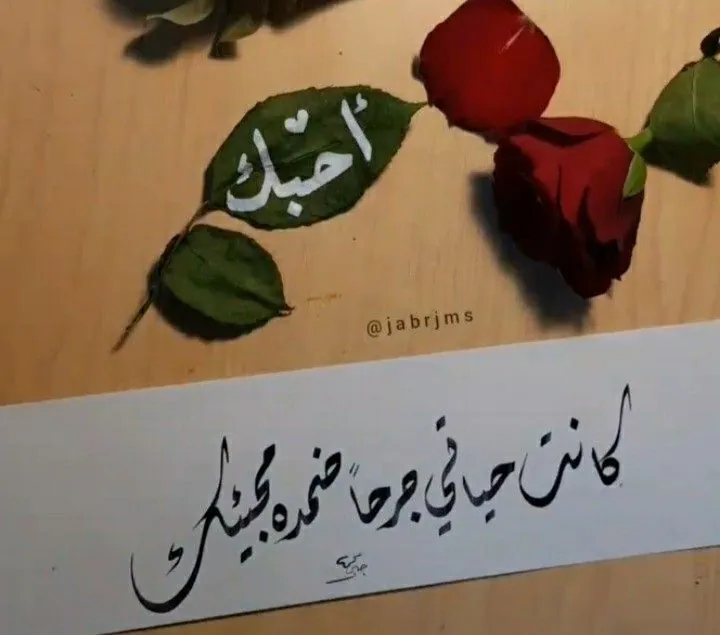 أحبك
@jabrjms
كانت حياتي جرحاً ضمده مجيئك